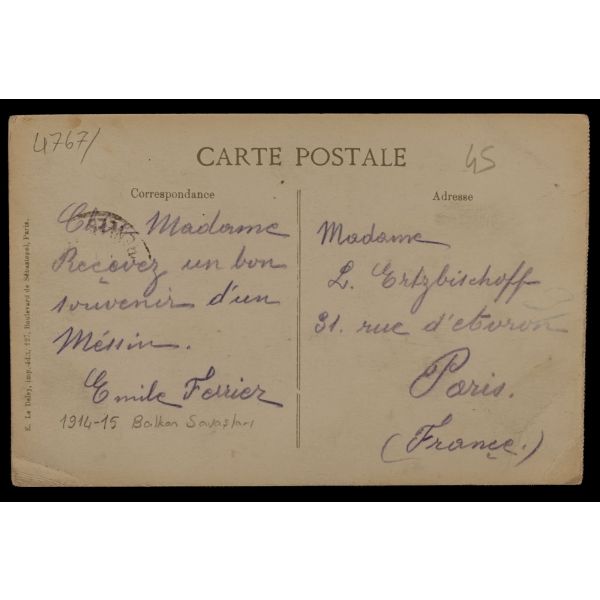 4767/
45
CARTE POSTALE
Correspondance
Adresse
Chère Madame
Reçevez un bon
souvenir d'un
Méssin.
Emile Ferrier
1914-15 Balkan Savaşları
Madame
L. Ertzbischoff
31. rue d'
Paris.
(Françe.)
E. Le Deley, imp.-édit., 127, Boulevard de Sébastopol, Paris.